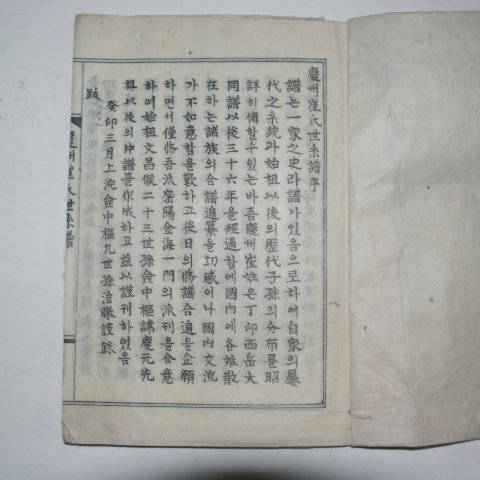 慶州崔氏世系譜序
譜는一家之史라譜가있음으로하여自家의屢
代之系統과始祖以後의歷代子孫의分布를昭
詳히傳할수있는바吾慶州崔族은丁卯西岳大
同譜以後三十六年을經過함에國內에各離散
在하는諸族의合譜追纂을切感이나國內交流
가不如意함을歎하고後日의修譜合追을企願
하면서僅修吾派密陽金海一門의派刊을合意
하여始祖文昌侯二十三世孫僉中樞諱慶元先
祖以後의中譜를作成하고玆以謹刊하였음
癸卯三月上浣僉中樞九世孫浩 謹錄
跋
慶州崔氏世系譜